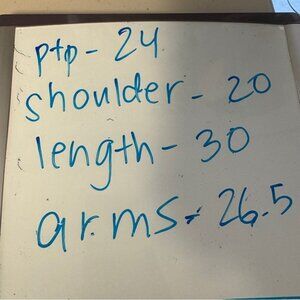 ptp - 24
shoulder - 20
length - 30
arms - 26.5